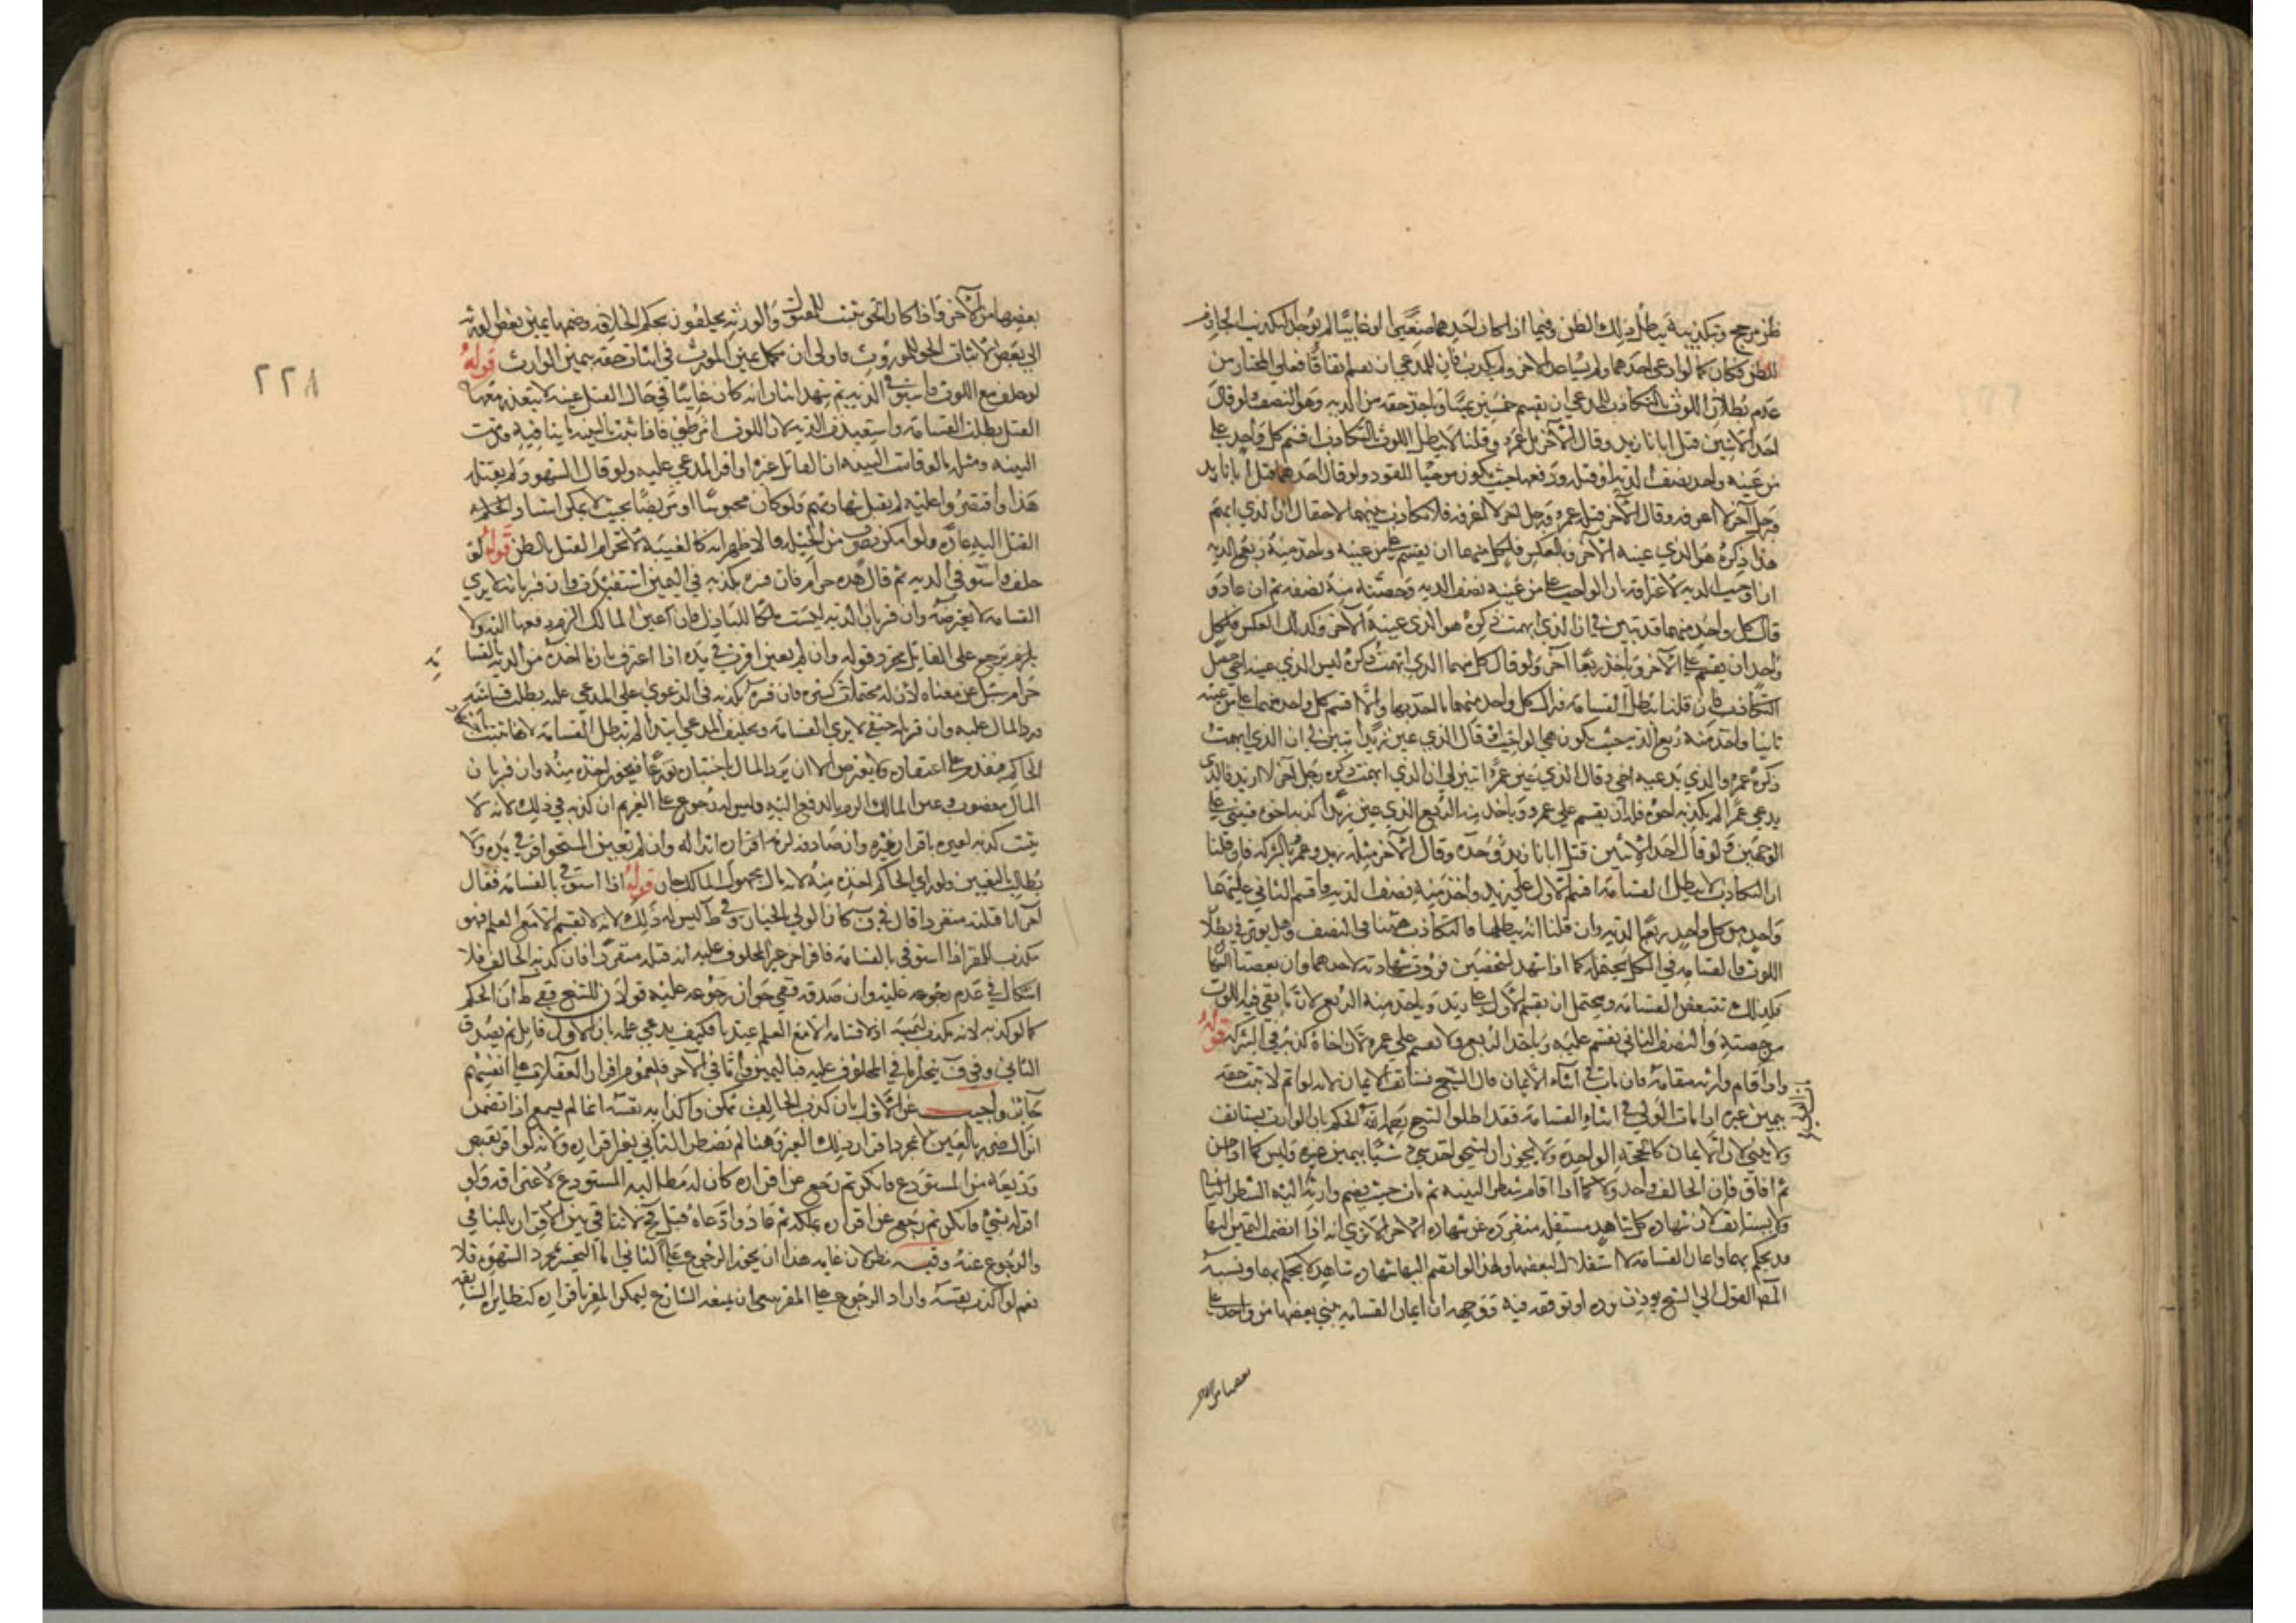 ظن مرجح وتكذيبه يبطل ذلك الظن وفيما اذا كان احدهما صغيرا او غايبا لم يوجد التكذيب الجازم
للظن فكان كما لو ادعى احدهما ولم يساعد الاخر ولم يكذب فان للمدعي ان يقسم اتفاقا فعلى المختار من
عدم بطلان اللوث بالتكاذب للمدعي ان يقسم خمسين يمينا وياخذ حقه من الدية وهو النصف ولو قال
احد الاثنين قتل ابانا زيد وقال الآخر بل عمرو وقلنا لا يبطل اللوث بالتكاذب اقسم كل واحد على
من عينه واخذ نصف الدية او قتله ورد نصفها حيث يكون موجبا للقود ولو قال احدهما قتل ابانا زيد
ورجل آخر لا اعرفه وقال الآخر قتله عمرو ورجل اخر لا اعرفه فلا تكاذب بينهما لاحتمال ان الذي ابهم
هذا ذكره هو الذي عينه الآخر وبالعكس فلكل منهما ان يقسم على من عينه وياخذ منه ربع الدية
ان اوجب الدية لاعترافه بان الواجب على من عينه نصف الدية وحصته منه نصفه ثم ان عادو
قال كل واحد منهما قد تبين لي ان الذي ابهمت ذكره هو الذي عينه الآخر وكذلك العكس فلكل
واحد ان يقسم على الآخر وياخذ ربعا آخر ولو قال كل منهما الذي ابهمت ذكره ليس الذي عينه اخي حصل
التكاذب فان قلنا تبطل القسامة فرد كل واحد منهما ما اخذ بها والا اقسم كل واحد منهما على من عينه
ثانيا واخذ منه ربع الدية حيث يكون هي الواجب قال الذي عين زيدا تبين لي ان الذي ابهمت
ذكره عمرو والذي يدعيه اخي وقال الذي عين عمرا تبين لي ان الذي ابهمت ذكره رجل آخر لا زيد فالذي
يدعي عمرا لم يكذبه اخوه فله ان يقسم على عمرو وياخذ منه الربع الذي عين زيدا كذبه اخوه فيبنى على
الوجهين ولو قال احد الاثنين قتل ابانا زيد وحده وقال الآخر مثله زيد وعمرو بالشركة فان قلنا
ان التكاذب لا يبطل القسامة اقسم الاول على زيد واخذ منه نصف الدية واقسم الثاني عليهما
واخذ من كل واحد ربع الدية وان قلنا انه يبطلها فالتكاذب ههنا في النصف وهل يوثر في بطلان
اللوث والقسامة في الكل يحتمله كما اذا شهد لشخصين فردت شهادته لاحدهما وان بعضنا الشهادة
فكذلك تتبعض القسامة ويحتمل ان يقسم الاول على زيد وياخذ منه الربع لانه ما بقي فيه اللوث
من حصته والنصف الثاني يقسم عليه وياخذ الربع ولا يقسم على عمرو لان اخاه كذبه في الشركة قوله
واذا قام وارثه مقامه فان مات في اثناء الايمان قال الشيخ تستانف الايمان لانه لو اتم لا ثبت حقه
بيمين غيره اذا مات الولي في اثناء القسامة فقد اطلق الشيخ رحمه الله الحكم بان الوارث يستانف
ولا يبني لان الايمان كالحجة الواحدة ولا يجوز ان يستحق احد شيئا بيمين غيره وليس كما لو جن
ثم افاق فان الحالف واحد ولا كما اذا اقام شطر البينة ثم مات حيث يضم وارثه اليه الشطر الثاني
ولا يستانف لان شهادة كل شاهد مستقلة منفردة عن شهادة الاخر الا ترى انه اذا انضمت اليمين اليها
قد يحكم بهما وايمان القسامة لا استقلال لبعضها ولهذا لو انضم اليها شهادة شاهد لا يحكم بهما ونسبة
المصنف القول الى الشيخ يوذن برده او توقفه فيه ووجهه ان ايمان القسامة يبنى بعضها من واحد على
بعضها من الاخر
بعضها من الآخر فاذا كان الحق يثبت للمقتول والورثة يحلفون بحكم الخلافة وضمها يمين بعض الورثة
الى بعض لاثبات الحق للموروث فاولى ان يكمل يمين المورث في اثبات حقه بيمين الوارث قوله
لو حلف مع اللوث واستوفى الدية ثم شهد اثنان انه كان غايبا في حال القتل غيبة لا يتقدر معها
القتل بطلت القسامة واستعيدت الدية لان اللوث امر ظني فاذا ثبت بالبينة ما ينافيه قدمت
البينة ومثله ما لو قامت البينة ان القاتل غيره او اقر المدعي عليه ولو قال الشهود لم يقتله
هذا واقتصروا عليه لم يقبل شهادتهم ولو كان محبوسا او مريضا بحيث لا يمكن استناد
القتل اليه عادة ولو امكن بضرب من الحيلة فالاظهر انه كالغيبة لانخرام القتل بالظن قوله لو
حلف واستوفى الدية ثم قال هذه حرام فان فسره بكذبه في اليمين استعيدت وان فسر بانه لا يرى
القسامة لا يعترضه وان فسر بان الدية ليست ملكا للباذل فان اعين المالك الزم دفعها اليه ولا
يلزم يرجع على القاتل بمجرد قوله وان لم يعين اقرت في يده اذا اعترف بان ما اخذه من الدية بالقسامة
حرام سئل عن معناه لان له محتملات كثيرة فان فسره بكذبه في الدعوى على المدعي عليه بطلت قسامته
ورد المال عليه وان فسر بانه حنفي لا يرى القسامة وتحليف المدعي ابتدا لم تبطل القسامة لانها تثبت
الحاكم فيقدم على اعتقاده ولا يعترض الا ان يرد المال باختياره تورعا فيجوز اخذه منه وان فسر بان
المال مغصوب وعين المالك الزم بالدفع اليه وليس له رجوع على الغريم ان كذبه في ذلك لانه لا
يثبت كذبه لغيره باقرار غيره وان صادقه لزمه اقراره انه اله وان لم يعين المستحق اقر في يده ولا
يطالب بالتعيين ولو راى الحاكم اخذه منه لانه مال مجهول المالك جاز قوله اذا استوفى بالقسامة فقال
آخر انا قتلته منفردا قال في ف كان الولي بالخيار وفي ط ليس له ذلك لانه لا يقسم الا مع العلم فهو
مكذب للمقر اذا استوفى بالقسامة فاقر اخر غير المحلوف عليه انه قتله منفردا فان كذبه الحالف فلا
اشكال في عدم رجوعه عليه وان صدقه ففي جواز رجوعه عليه قولان للشيخ ففي ط ان الحكم
كما لو كذبه لانه مكذب ليمينه اذ لا قسامة الا مع العلم عندنا فكيف يدعي علمه بان الاول قاتل ثم يصدق
الثاني وفي ف يتخير اما في المحلوف عليه فباليمين واما في الآخر فلعموم اقرار العقلاء على انفسهم
جائز واجيب عن الاول بان كذب الحالف ممكن واكذابه نفسه انما لم يسمع اذا تضمن
انزال ضرر بالغير لا بمجرد اقرار ذلك الغير وهنا لم يضطر الثاني بغير اقراره ولانه لو اقر بقبض
وديعة من المستودع فانكر ثم رجع عن اقراره كان له مطالبة المستودع لاعترافه ولو
اقر له بشيء فانكر ثم رجع عن اقراره بملكه ثم عاد وادعاه قبل لانه لا تنافي بين الاقرار بالتنافي
والرجوع عنه وفيه نظر لان غايته هذا ان يجوز الرجوع على الثاني اما التخيير بمجرد التشهي فلا
نعم لو اكذب نفسه واراد الرجوع على المقر ينبغي ان يسمعه الشارع ليمكن المقر باقراره كنظايره السابقة
٢٢٨